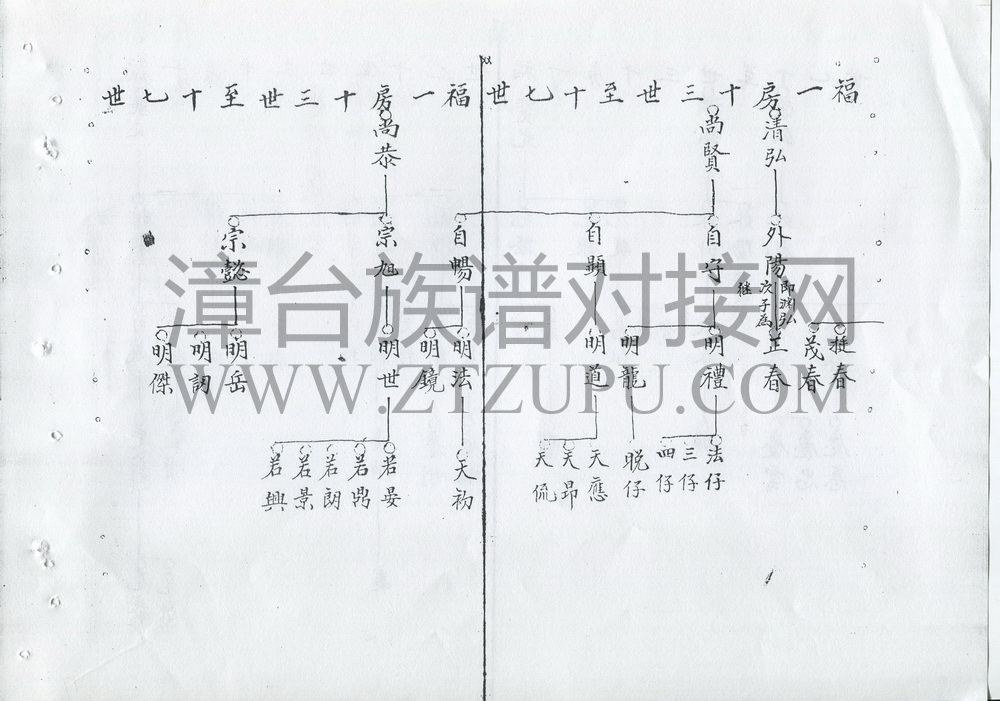 福一房十三世至十七世
清弘
尚賢
外陽
即淵弘次子為繼
自守
自顯
自暢
挺春
茂春
正春
明禮
明龍
明道
明法
明鏡
法仔
三仔
四仔
晚仔
天應
天昂
天侃
天初
福一房十三世至十七世
尚恭
宗旭
宗懿
明世
明岳
明調
明傑
若晏
若鼎
若朗
若景
若興
漳台族谱对接网
WWW.ZTZUPU.COM